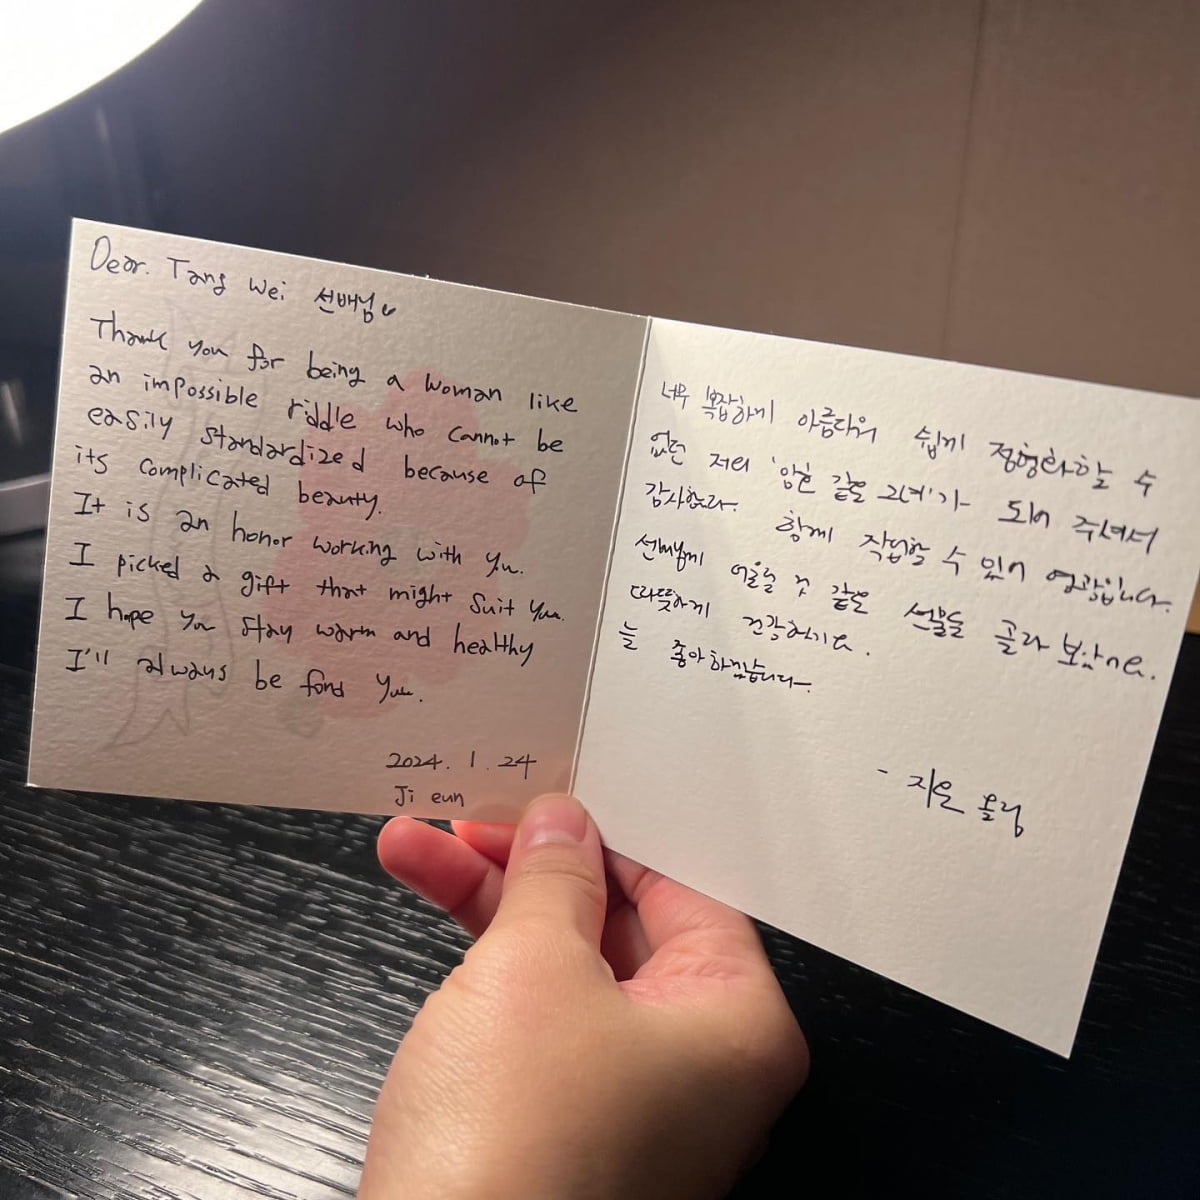 Dear. Tang Wei 선배님♥
Thank you for being a woman like
an impossible riddle who cannot be
easily standardized because of
its complicated beauty.
It is an honor working with you.
I picked a gift that might suit you.
I hope you stay warm and healthy
I'll always be fond you.
2024. 1. 24
Ji eun
너무 복잡하게 아름다워 쉽게 정형화할 수
없던 저의 '암호 같은 그녀'가 되어 주셔서
감사해요. 함께 작업할 수 있어 영광입니다.
선배님께 어울릴 것 같은 선물을 골라 보았어요.
따뜻하게 건강하시고.
늘 좋아하겠습니다.
- 지은 올림